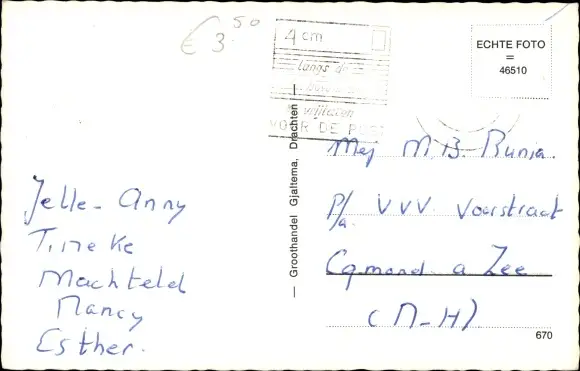 € 3.50
4 cm
langs de
vrijlaten
VOOR DE POST
ECHTE FOTO
=
46510
— Groothandel Gjaltema, Drachten —
Jelle - Anny
Tineke
Machteld
Nancy
Esther.
Mej M.B. Runia.
P/a. VVV Voorstraat
Egmond a Zee
(N-H)
670